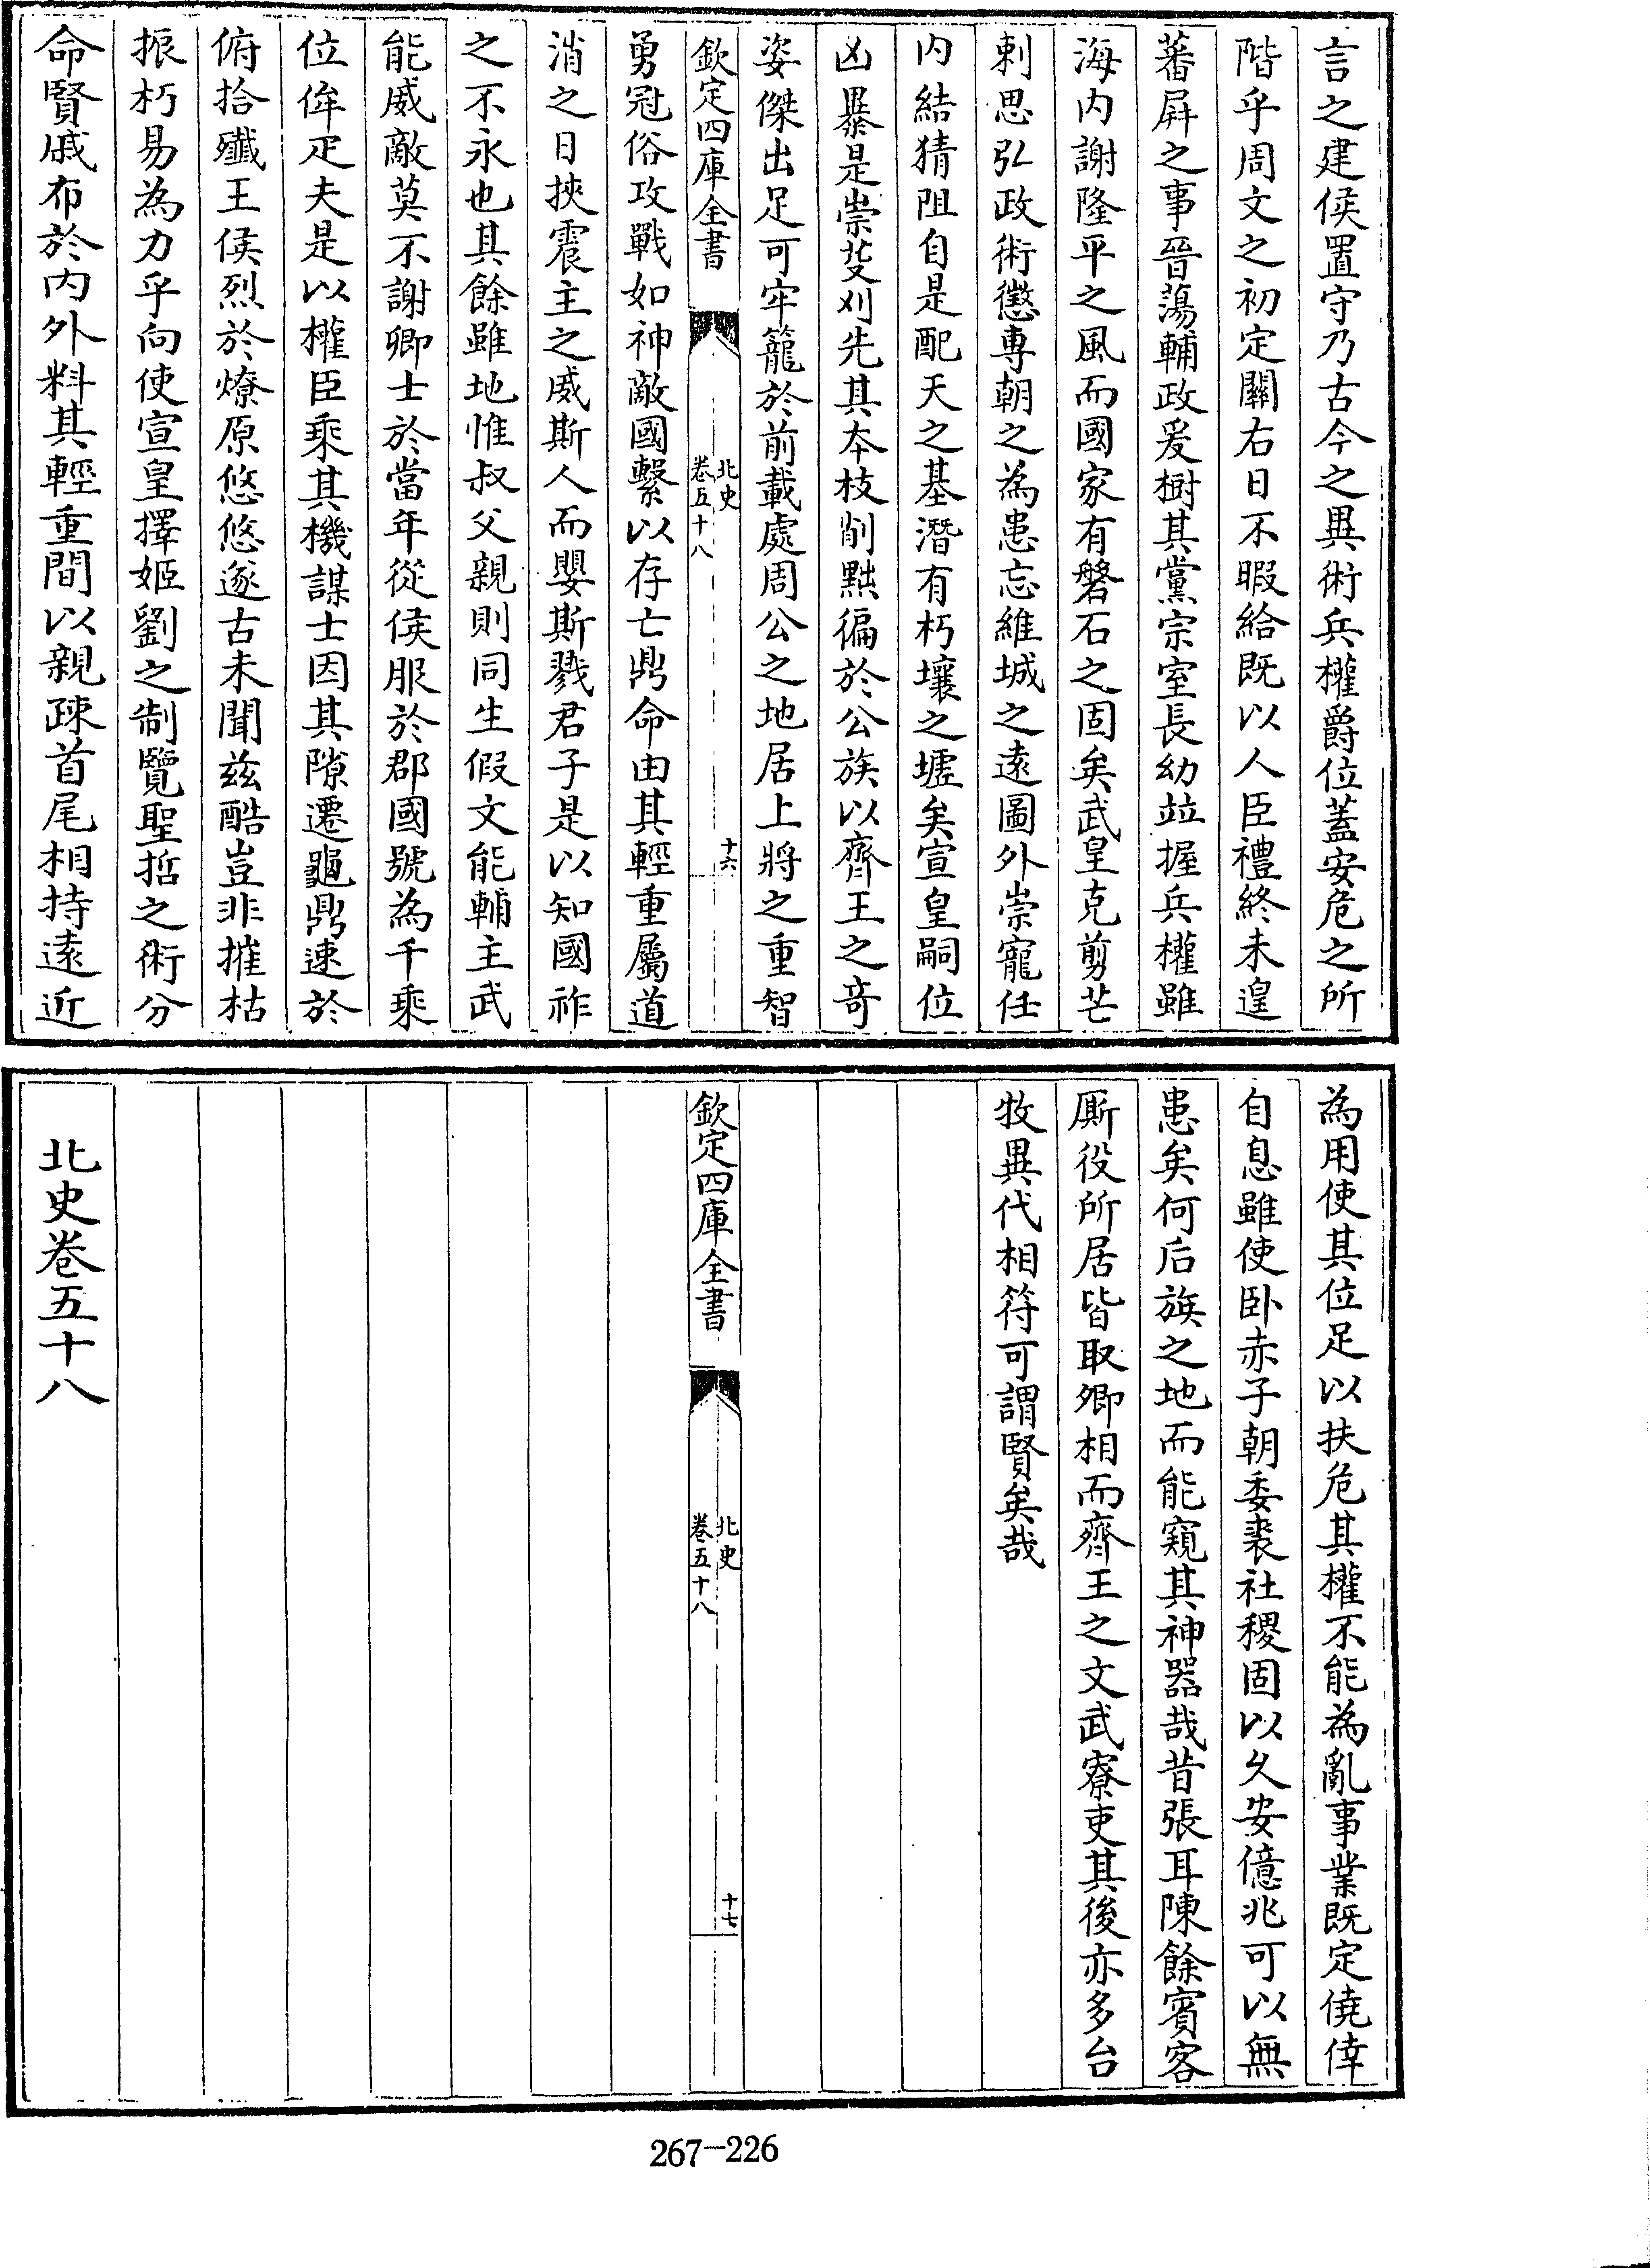 言之建侯置守乃古今之異術兵權爵位蓋安危之所
階乎周文之初定關右日不暇給既以人臣禮終未遑
蕃屏之事晉蕩輔政爰樹其黨宗室長幼竝握兵權雖
海内謝隆平之風而國家有磐石之固矣武皇克剪芒
刺思弘政術懲專朝之為患忘維城之遠圖外崇寵任
内結猜阻自是配天之基潛有朽壤之墟矣宣皇嗣位
凶暴是崇芟刈先其本枝削黜徧於公族以齊王之竒
姿傑出足可牢籠於前載處周公之地居上將之重智
欽定四庫全書
北史
卷五十八
十六
勇冠俗攻戰如神敵國繫以存亡鼎命由其輕重屬道
消之日挾震主之威斯人而嬰斯戮君子是以知國祚
之不永也其餘雖地惟叔父親則同生假文能輔主武
能威敵莫不謝卿士於當年從侯服於郡國號為千乘
位侔疋夫是以權臣乘其機謀士因其隙遷龜鼎速於
俯拾殲王侯烈於燎原悠悠邃古未聞兹酷豈非摧枯
振朽易為力乎向使宣皇擇姬劉之制覽聖哲之術分
命賢戚布於内外料其輕重間以親疎首尾相持遠近
為用使其位足以扶危其權不能為亂事業既定僥倖
自息雖使卧赤子朝委裘社稷固以久安億兆可以無
患矣何后族之地而能窺其神器哉昔張耳陳餘賓客
厮役所居皆取卿相而齊王之文武寮吏其後亦多台
牧異代相符可謂賢矣哉
欽定四庫全書
北史
卷五十八
十七
北史卷五十八
267-226